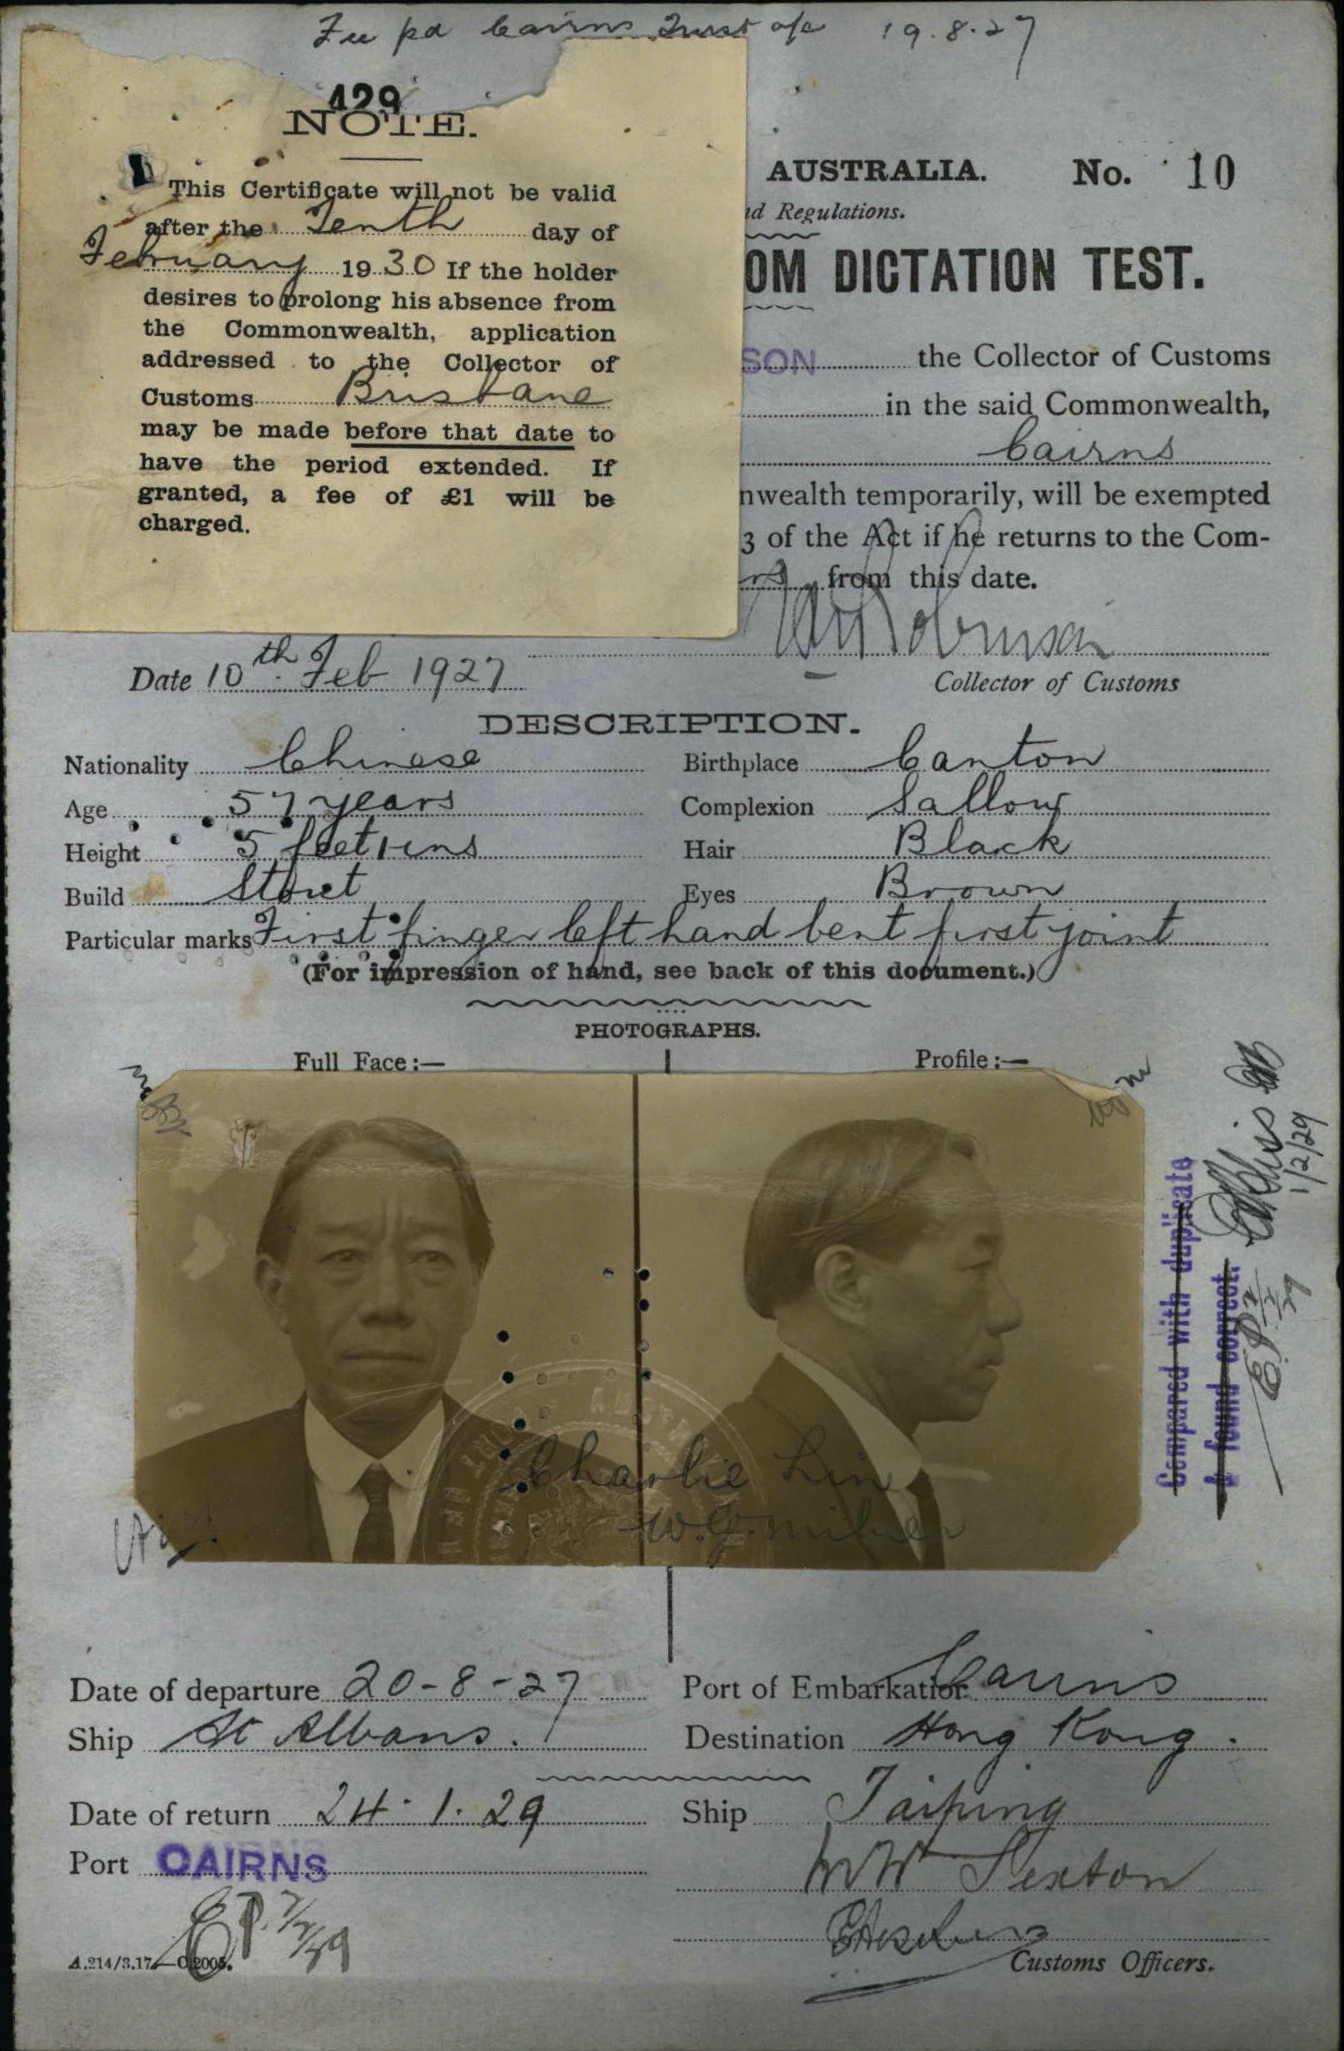 Fee pd Cairns Trust a/c 19.8.27
429
NOTE.
This Certificate will not be valid
after the Tenth day of
February 1930 If the holder
desires to prolong his absence from
the Commonwealth, application
addressed to the Collector of
Customs Brisbane
may be made before that date to
have the period extended. If
granted, a fee of £1 will be
charged.
AUSTRALIA. No. 10
nd Regulations.
OM DICTATION TEST.
SON the Collector of Customs
in the said Commonwealth,
Cairns
nwealth temporarily, will be exempted
3 of the Act if he returns to the Com-
rs from this date.
Date 10th Feb 1927
Collector of Customs
DESCRIPTION.
Nationality Chinese Birthplace Canton
Age 57 years Complexion Sallow
Height 5 feet 1 ins Hair Black
Build Stout Eyes Brown
Particular marks First finger left hand bent first joint
(For impression of hand, see back of this document.)
PHOTOGRAPHS.
Full Face:— Profile:—
Compared with duplicate
& found correct.
1/2/29
Charlie Lin
W.G. Milner
Date of departure 20-8-27 Port of Embarkation Cairns
Ship St Albans. Destination Hong Kong.
Date of return 24.1.29 Ship Taiping
Port CAIRNS
Sexton
Customs Officers.
A.214/3.17.—C.2005.